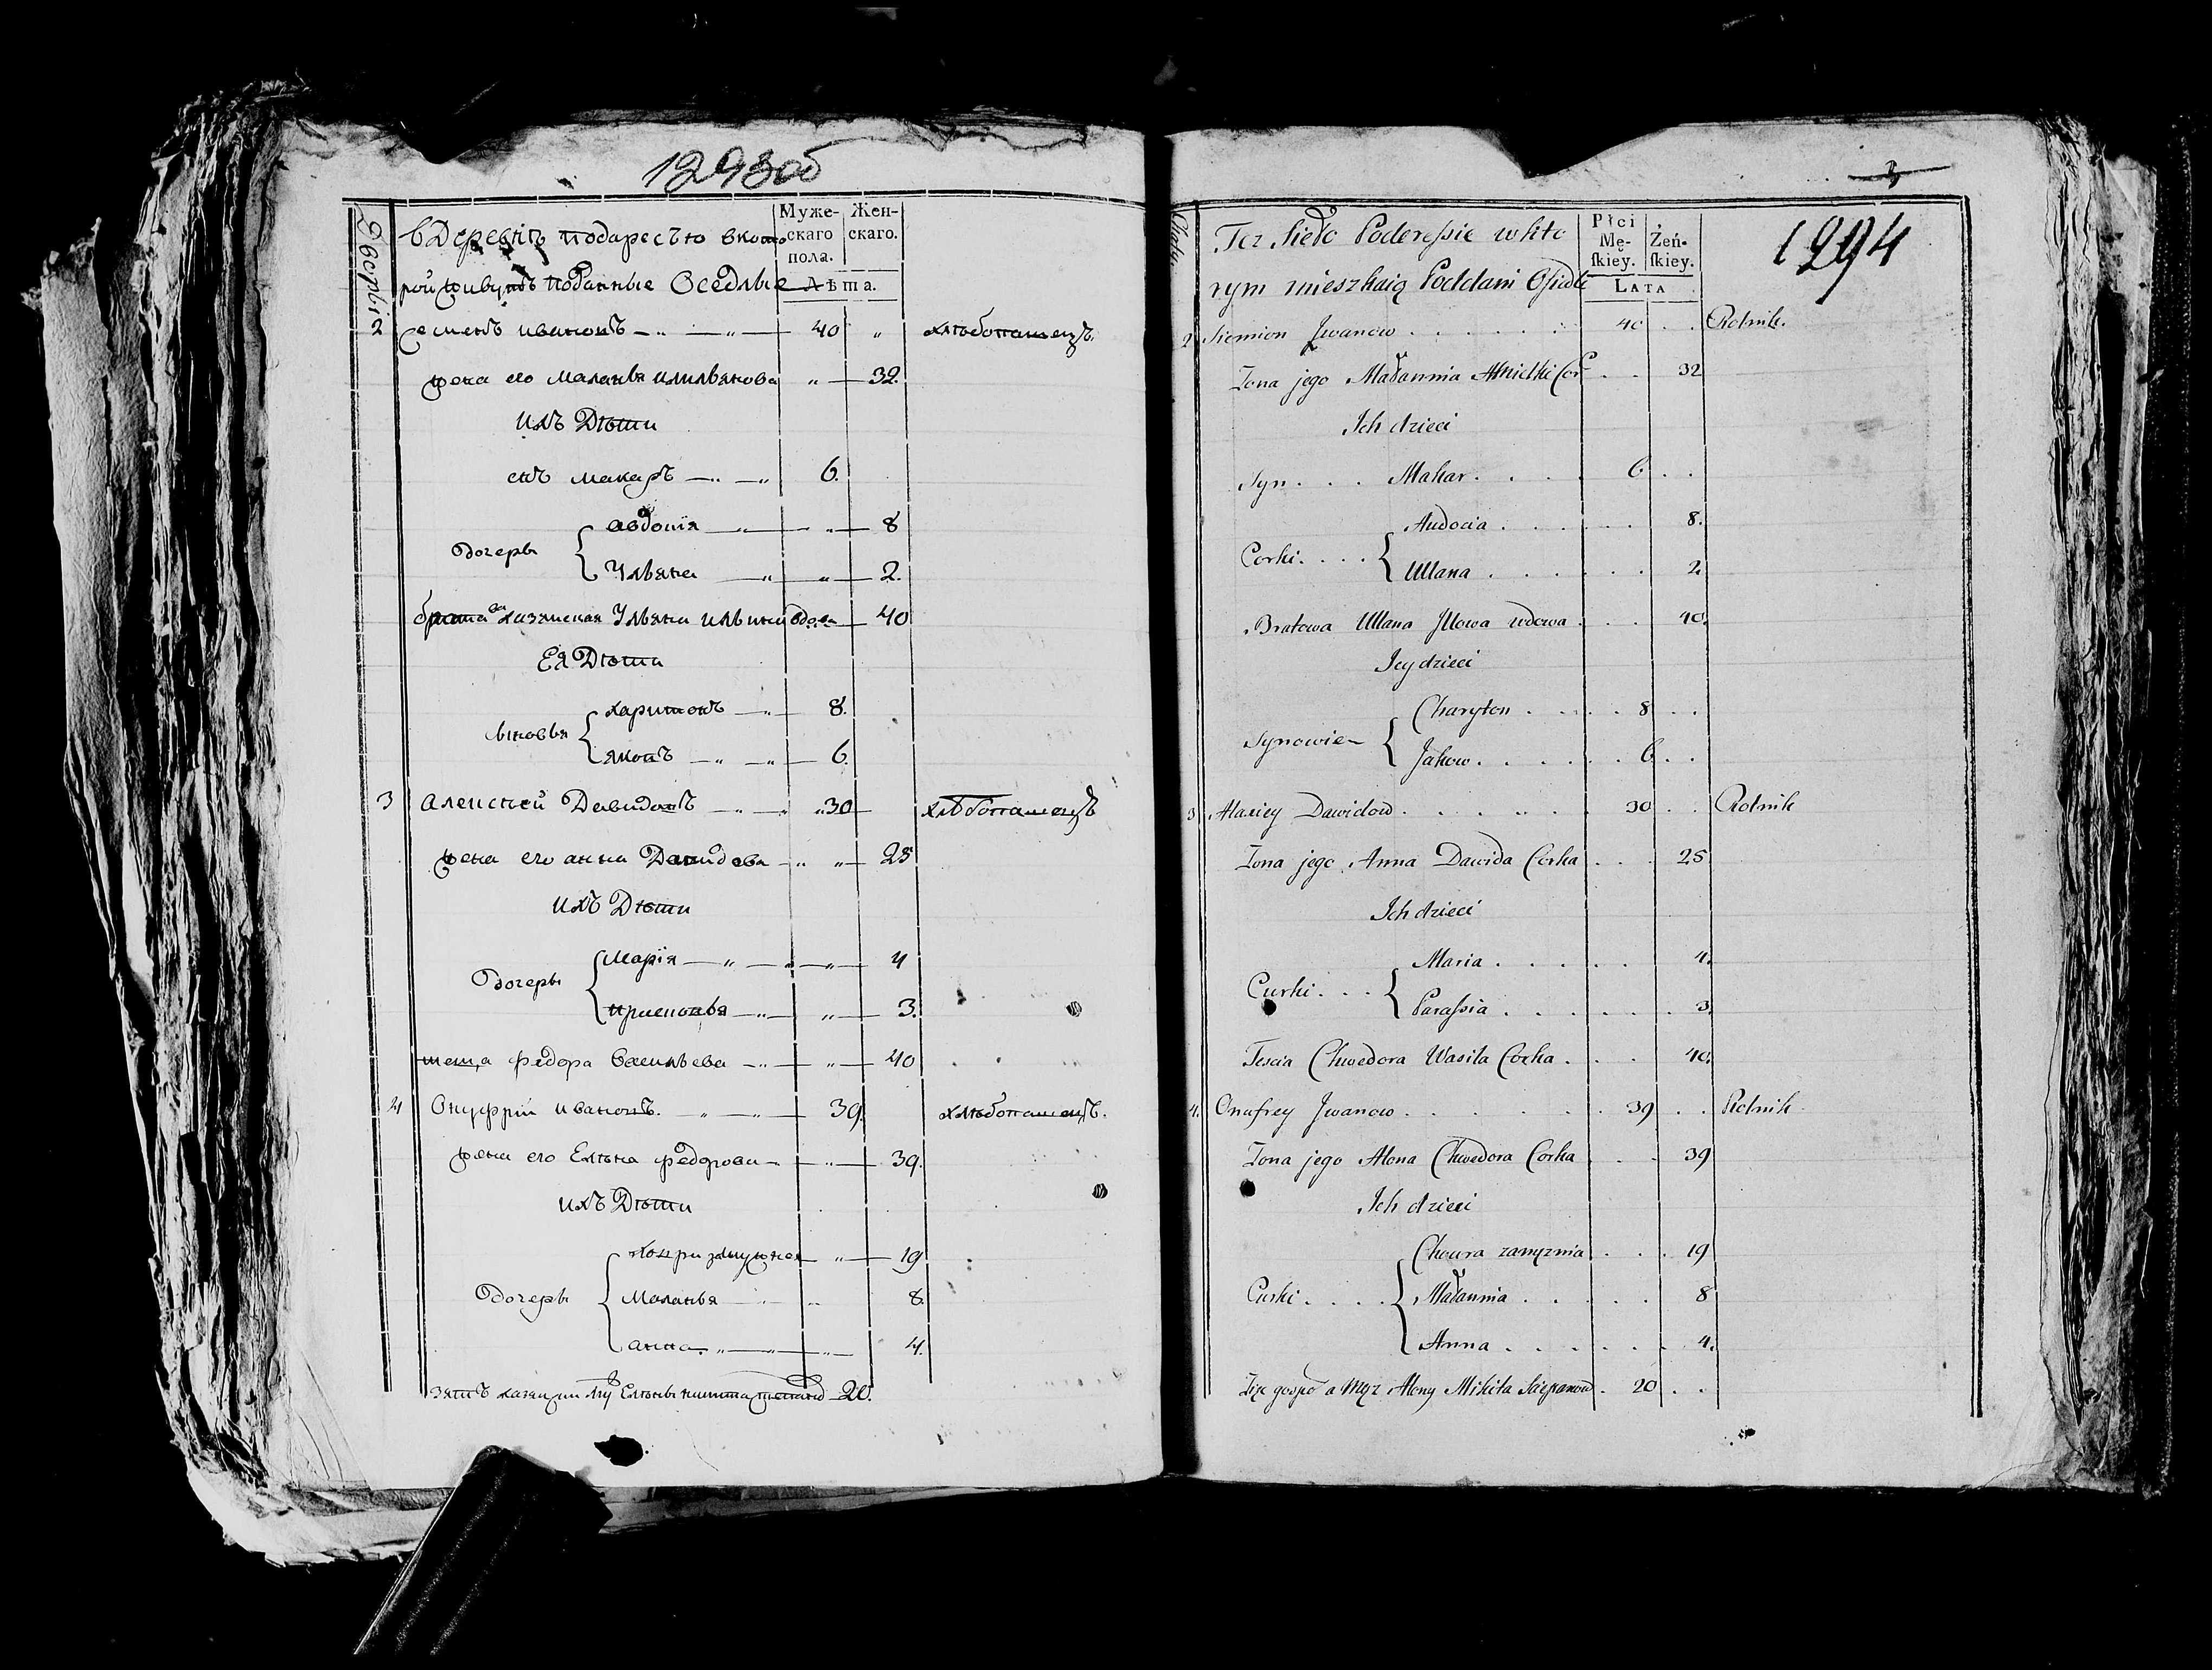 1293об
Дворы
в Деревнѣ подаресью в кото
рой живутъ поданные Оседлые
Муже-
скаго
пола.
Жен-
скаго.
Лѣта.
2 Семенъ ивановъ 40 „ хлѣбопашецъ.
жена его маланья 32.
ихъ Дѣти
снъ макаръ 6.
дочеры
авдоция 8
Ульяна 2.
Ульяна ильина вдова 40
Ея Дѣти
харитонъ 8.
яковъ 6.
3 алексѣй Давидовъ 30 хлѣбопашецъ
жена его анна Давидова 25
ихъ Дѣти
дочеры
Марія 4
3.
теща федора васильева 40
4 Онуфрій ивановъ. 39. хлѣбопашецъ.
жена его Елѣна федорова 39.
ихъ Дѣти
дочеры
19
маланья 8.
анна 4.
зять 20.
1294
Chaty
Tez Sieło Poderessie w któ
rym mieszkaią Poddani Osiedli
Płci
Mę-
skiey.
Żeń-
skiey.
LATA
2 Siemion Jwanow 40 Rolnik.
Zona jego Małannia 32
Ich dzieci
Syn Makar 6
Corki
Audocia 8.
Ullana 2
Bratowa Ullana Jllowa wdowa 40.
Jey dzieci
Synowie
Charyton 8
Jakow 6
3 Alaxiey Dawidow 30 Rolnik
Zona jego Anna Dawida Corka 25
Ich dzieci
Curki
Maria 4.
Parassia 3.
Tescia Chwedora Wasila Corka 40.
4. Onufrey Jwanow 39 Rolnik
Zona jego Alona Chwedora Corka 39
Ich dzieci
Curki
Chwura zamęznia 19
Małannia 8
Anna 4.
Zięc gospo a Mąz Alony Mikita Sciepanow 20